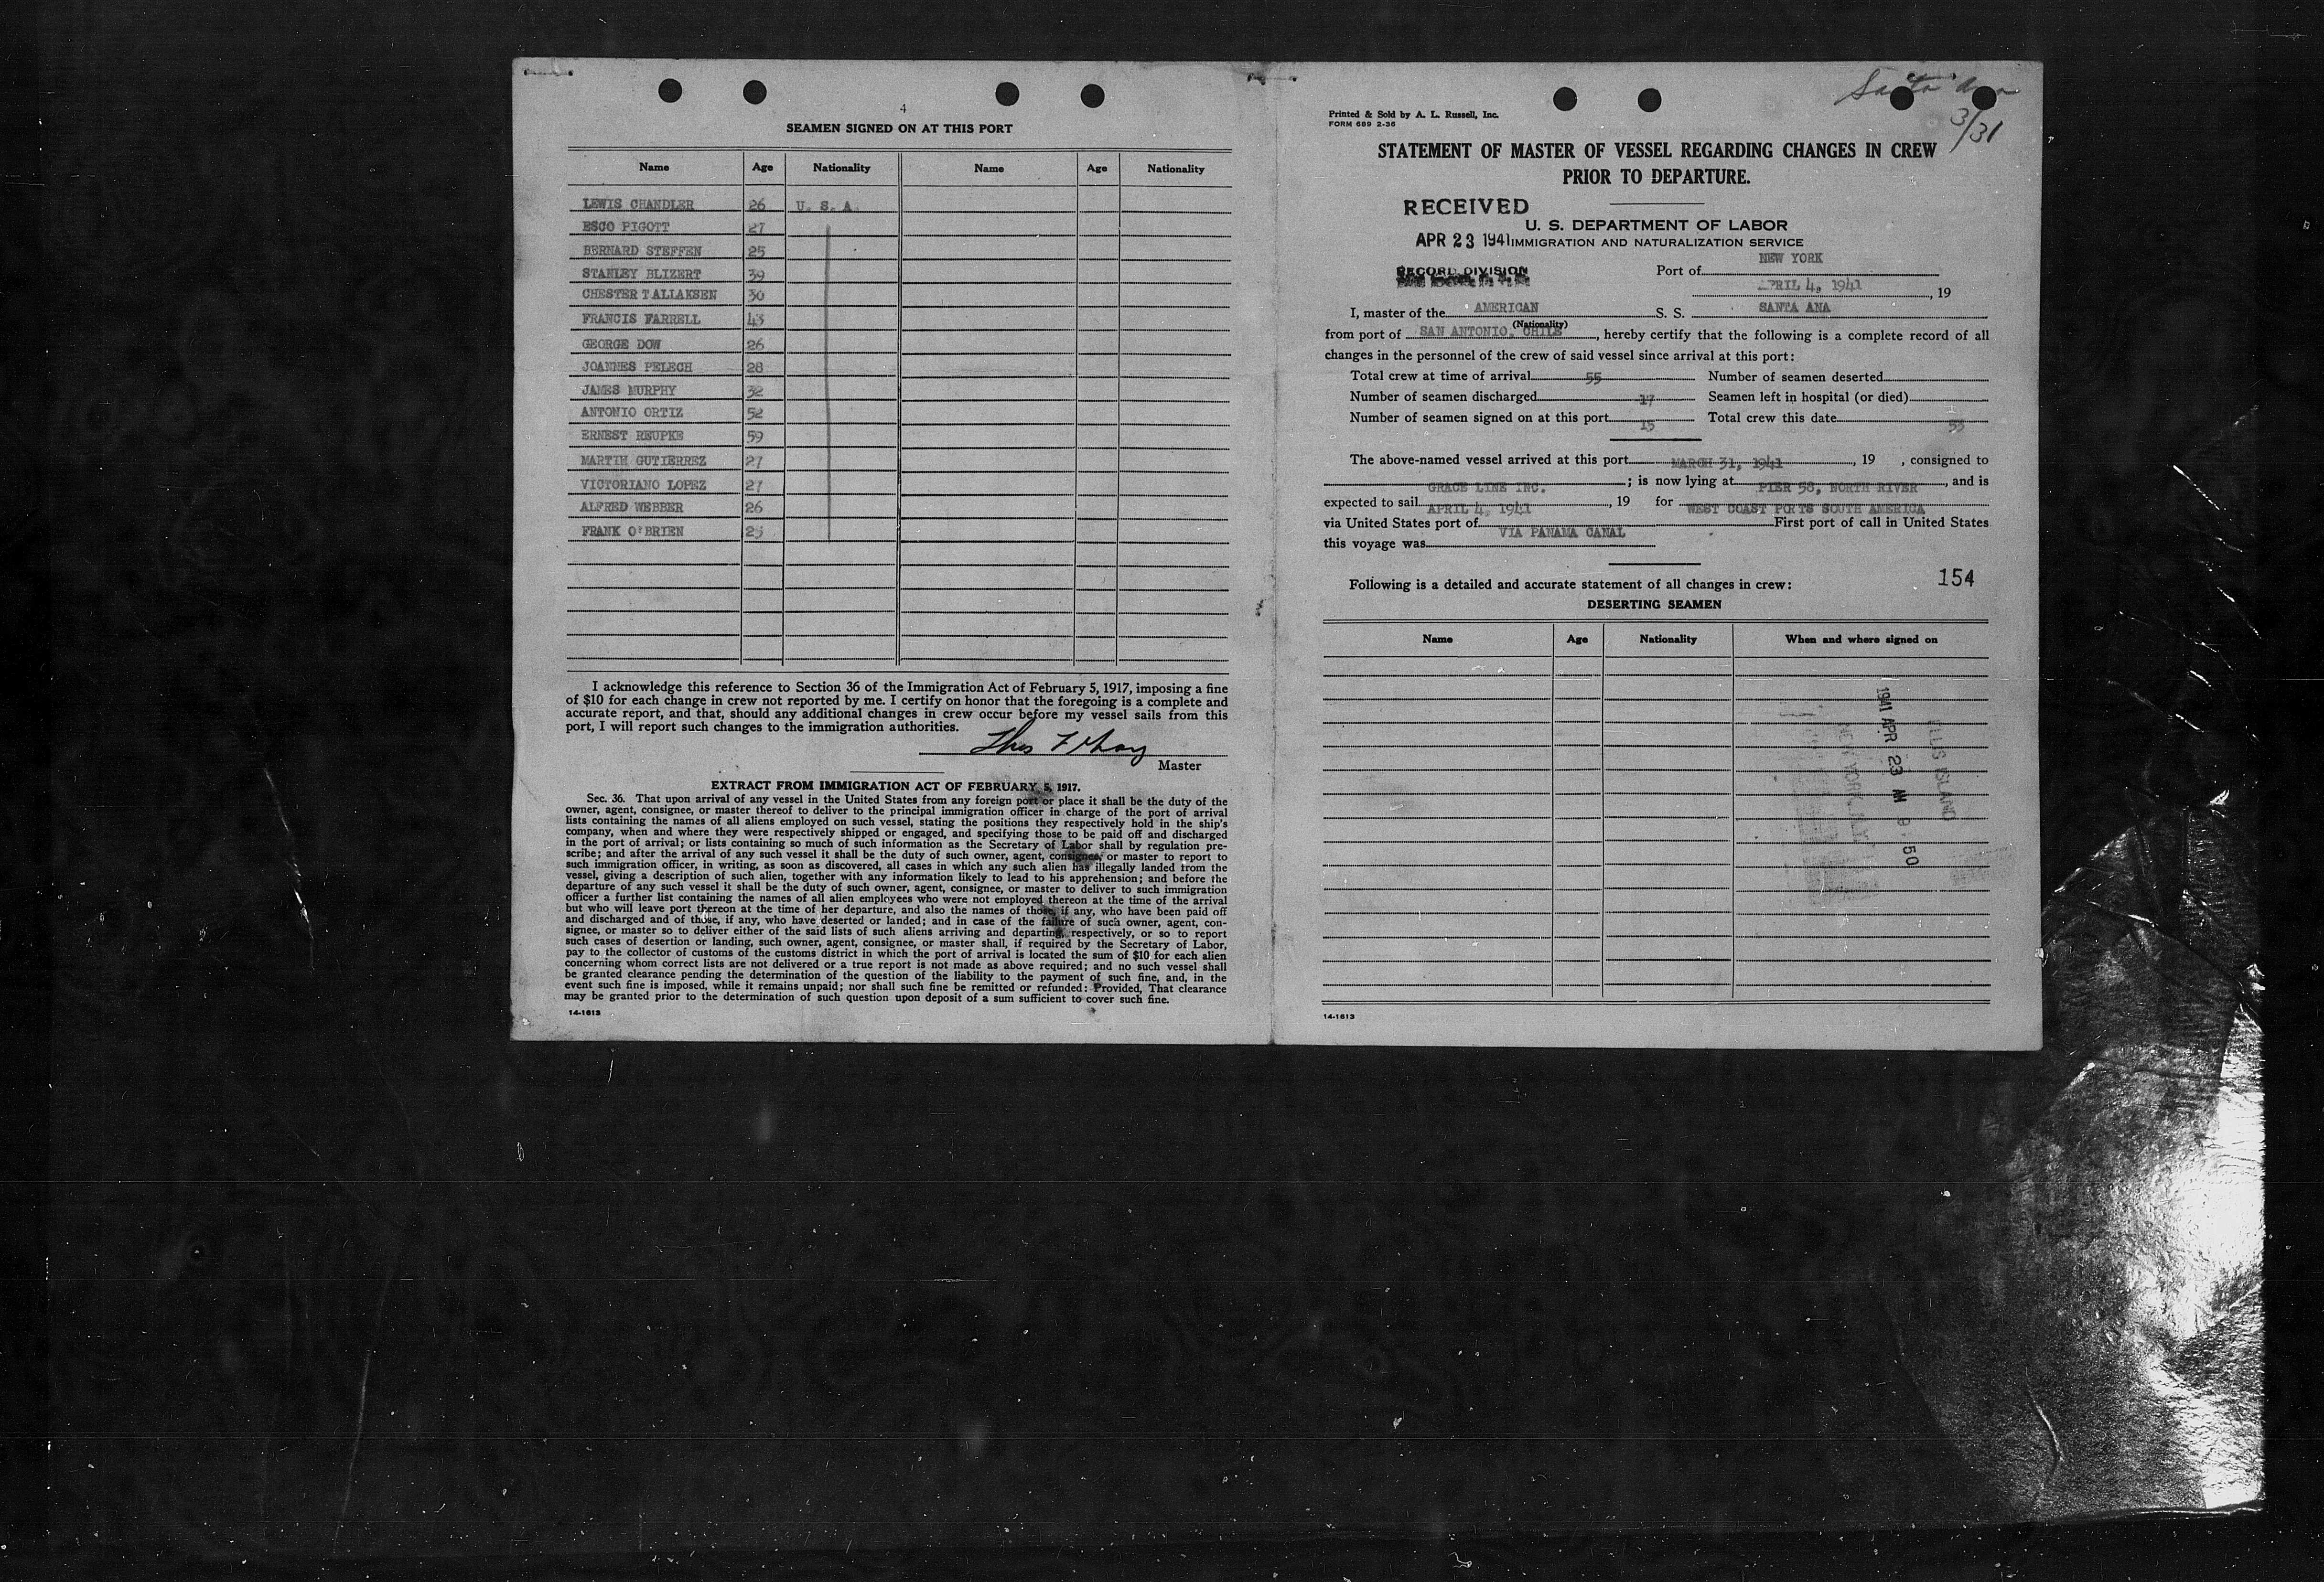 4
SEAMEN SIGNED ON AT THIS PORT
Name Age Nationality Name Age Nationality
LEWIS CHANDLER 26 U. S. A.
ESCO PIGOTT 27
BERNARD STEFFEN 25
STANLEY BLIZERT 39
CHESTER TALLAKSEN 30
FRANCIS FARRELL 43
GEORGE DOW 26
JOANNES PELECH 28
JAMES MURPHY 32
ANTONIO ORTIZ 52
ERNEST REUPKE 59
MARTIN GUTIERREZ 27
VICTORIANO LOPEZ 27
ALFRED WEBBER 26
FRANK O'BRIEN 25
I acknowledge this reference to Section 36 of the Immigration Act of February 5, 1917, imposing a fine
of $10 for each change in crew not reported by me. I certify on honor that the foregoing is a complete and
accurate report, and that, should any additional changes in crew occur before my vessel sails from this
port, I will report such changes to the immigration authorities.
Master
EXTRACT FROM IMMIGRATION ACT OF FEBRUARY 5, 1917.
Sec. 36. That upon arrival of any vessel in the United States from any foreign port or place it shall be the duty of the
owner, agent, consignee, or master thereof to deliver to the principal immigration officer in charge of the port of arrival
lists containing the names of all aliens employed on such vessel, stating the positions they respectively hold in the ship's
company, when and where they were respectively shipped or engaged, and specifying those to be paid off and discharged
in the port of arrival; or lists containing so much of such information as the Secretary of Labor shall by regulation pre-
scribe; and after the arrival of any such vessel it shall be the duty of such owner, agent, consignee, or master to report to
such immigration officer, in writing, as soon as discovered, all cases in which any such alien has illegally landed from the
vessel, giving a description of such alien, together with any information likely to lead to his apprehension; and before the
departure of any such vessel it shall be the duty of such owner, agent, consignee, or master to deliver to such immigration
officer a further list containing the names of all alien employees who were not employed thereon at the time of the arrival
but who will leave port thereon at the time of her departure, and also the names of those, if any, who have been paid off
and discharged and of those, if any, who have deserted or landed; and in case of the failure of such owner, agent, con-
signee, or master so to deliver either of the said lists of such aliens arriving and departing, respectively, or so to report
such cases of desertion or landing, such owner, agent, consignee, or master shall, if required by the Secretary of Labor,
pay to the collector of customs of the customs district in which the port of arrival is located the sum of $10 for each alien
concerning whom correct lists are not delivered or a true report is not made as above required; and no such vessel shall
be granted clearance pending the determination of the question of the liability to the payment of such fine, and, in the
event such fine is imposed, while it remains unpaid; nor shall such fine be remitted or refunded: Provided, That clearance
may be granted prior to the determination of such question upon deposit of a sum sufficient to cover such fine.
14-1613
Santa Ana
3/31
Printed & Sold by A. L. Russell, Inc.
FORM 689 2-36
STATEMENT OF MASTER OF VESSEL REGARDING CHANGES IN CREW
PRIOR TO DEPARTURE.
RECEIVED
U. S. DEPARTMENT OF LABOR
APR 23 1941 IMMIGRATION AND NATURALIZATION SERVICE
RECORD DIVISION
Port of NEW YORK
APRIL 4, 1941, 19
I, master of the AMERICAN S. S. SANTA ANA
(Nationality)
from port of SAN ANTONIO, CHILE, hereby certify that the following is a complete record of all
changes in the personnel of the crew of said vessel since arrival at this port:
Total crew at time of arrival 55 Number of seamen deserted
Number of seamen discharged 17 Seamen left in hospital (or died)
Number of seamen signed on at this port 15 Total crew this date 53
The above-named vessel arrived at this port MARCH 31, 1941, 19 , consigned to
GRACE LINE INC. ; is now lying at PIER 58, NORTH RIVER, and is
expected to sail APRIL 4, 1941, 19 for WEST COAST PORTS SOUTH AMERICA
via United States port of VIA PANAMA CANAL First port of call in United States
this voyage was
Following is a detailed and accurate statement of all changes in crew:
154
DESERTING SEAMEN
Name Age Nationality When and where signed on
ELLIS ISLAND
1941 APR 23 AM 9 50
NEW YORK, N.Y.
14-1613